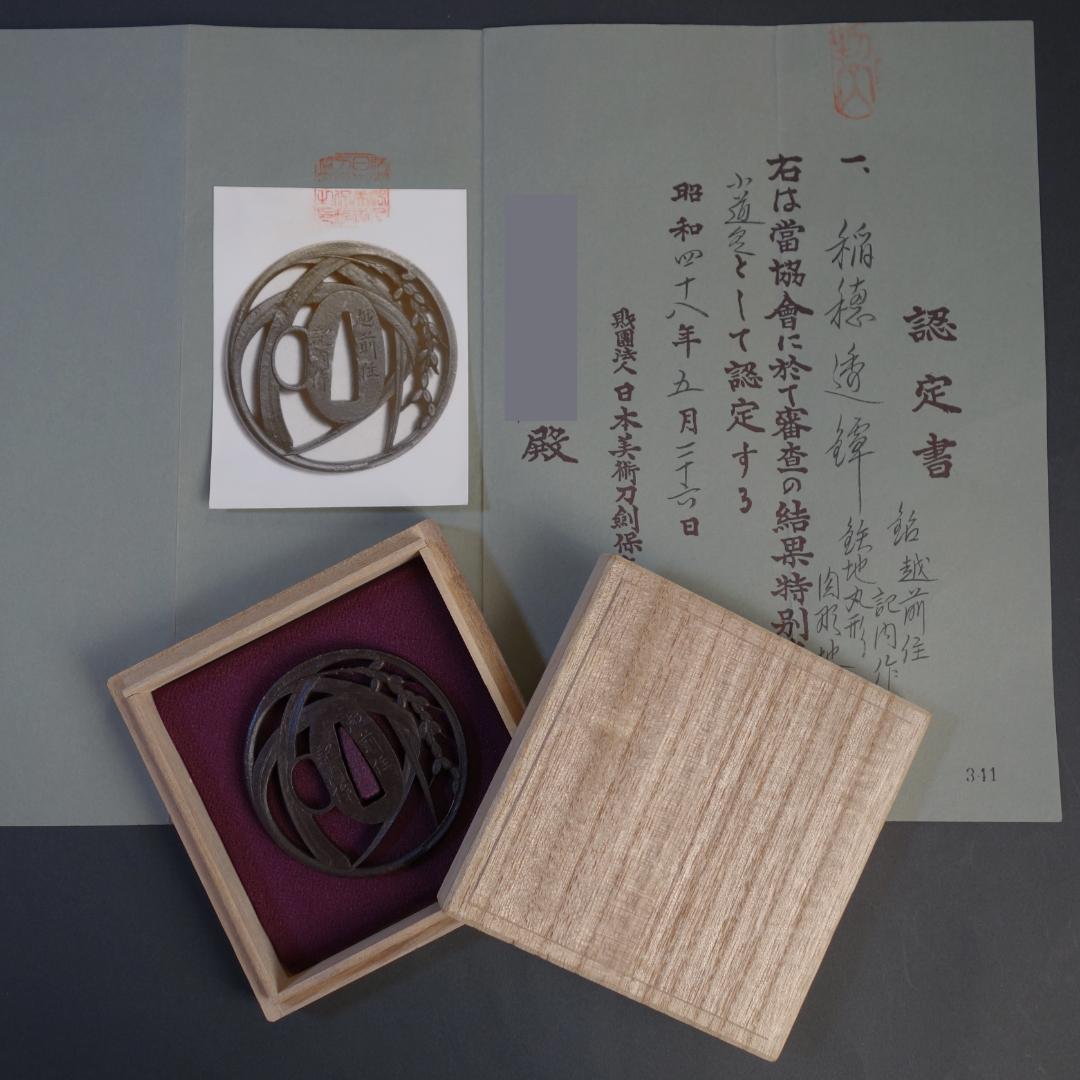 認定書
一、稲穂透鐔
銘越前住
記内作
鉄地丸形
肉彫地
右は當協會に於て審査の結果特別
小道具として認定する
昭和四十八年五月二十六日
財團法人日本美術刀劍保
殿
越前住
記内作
341